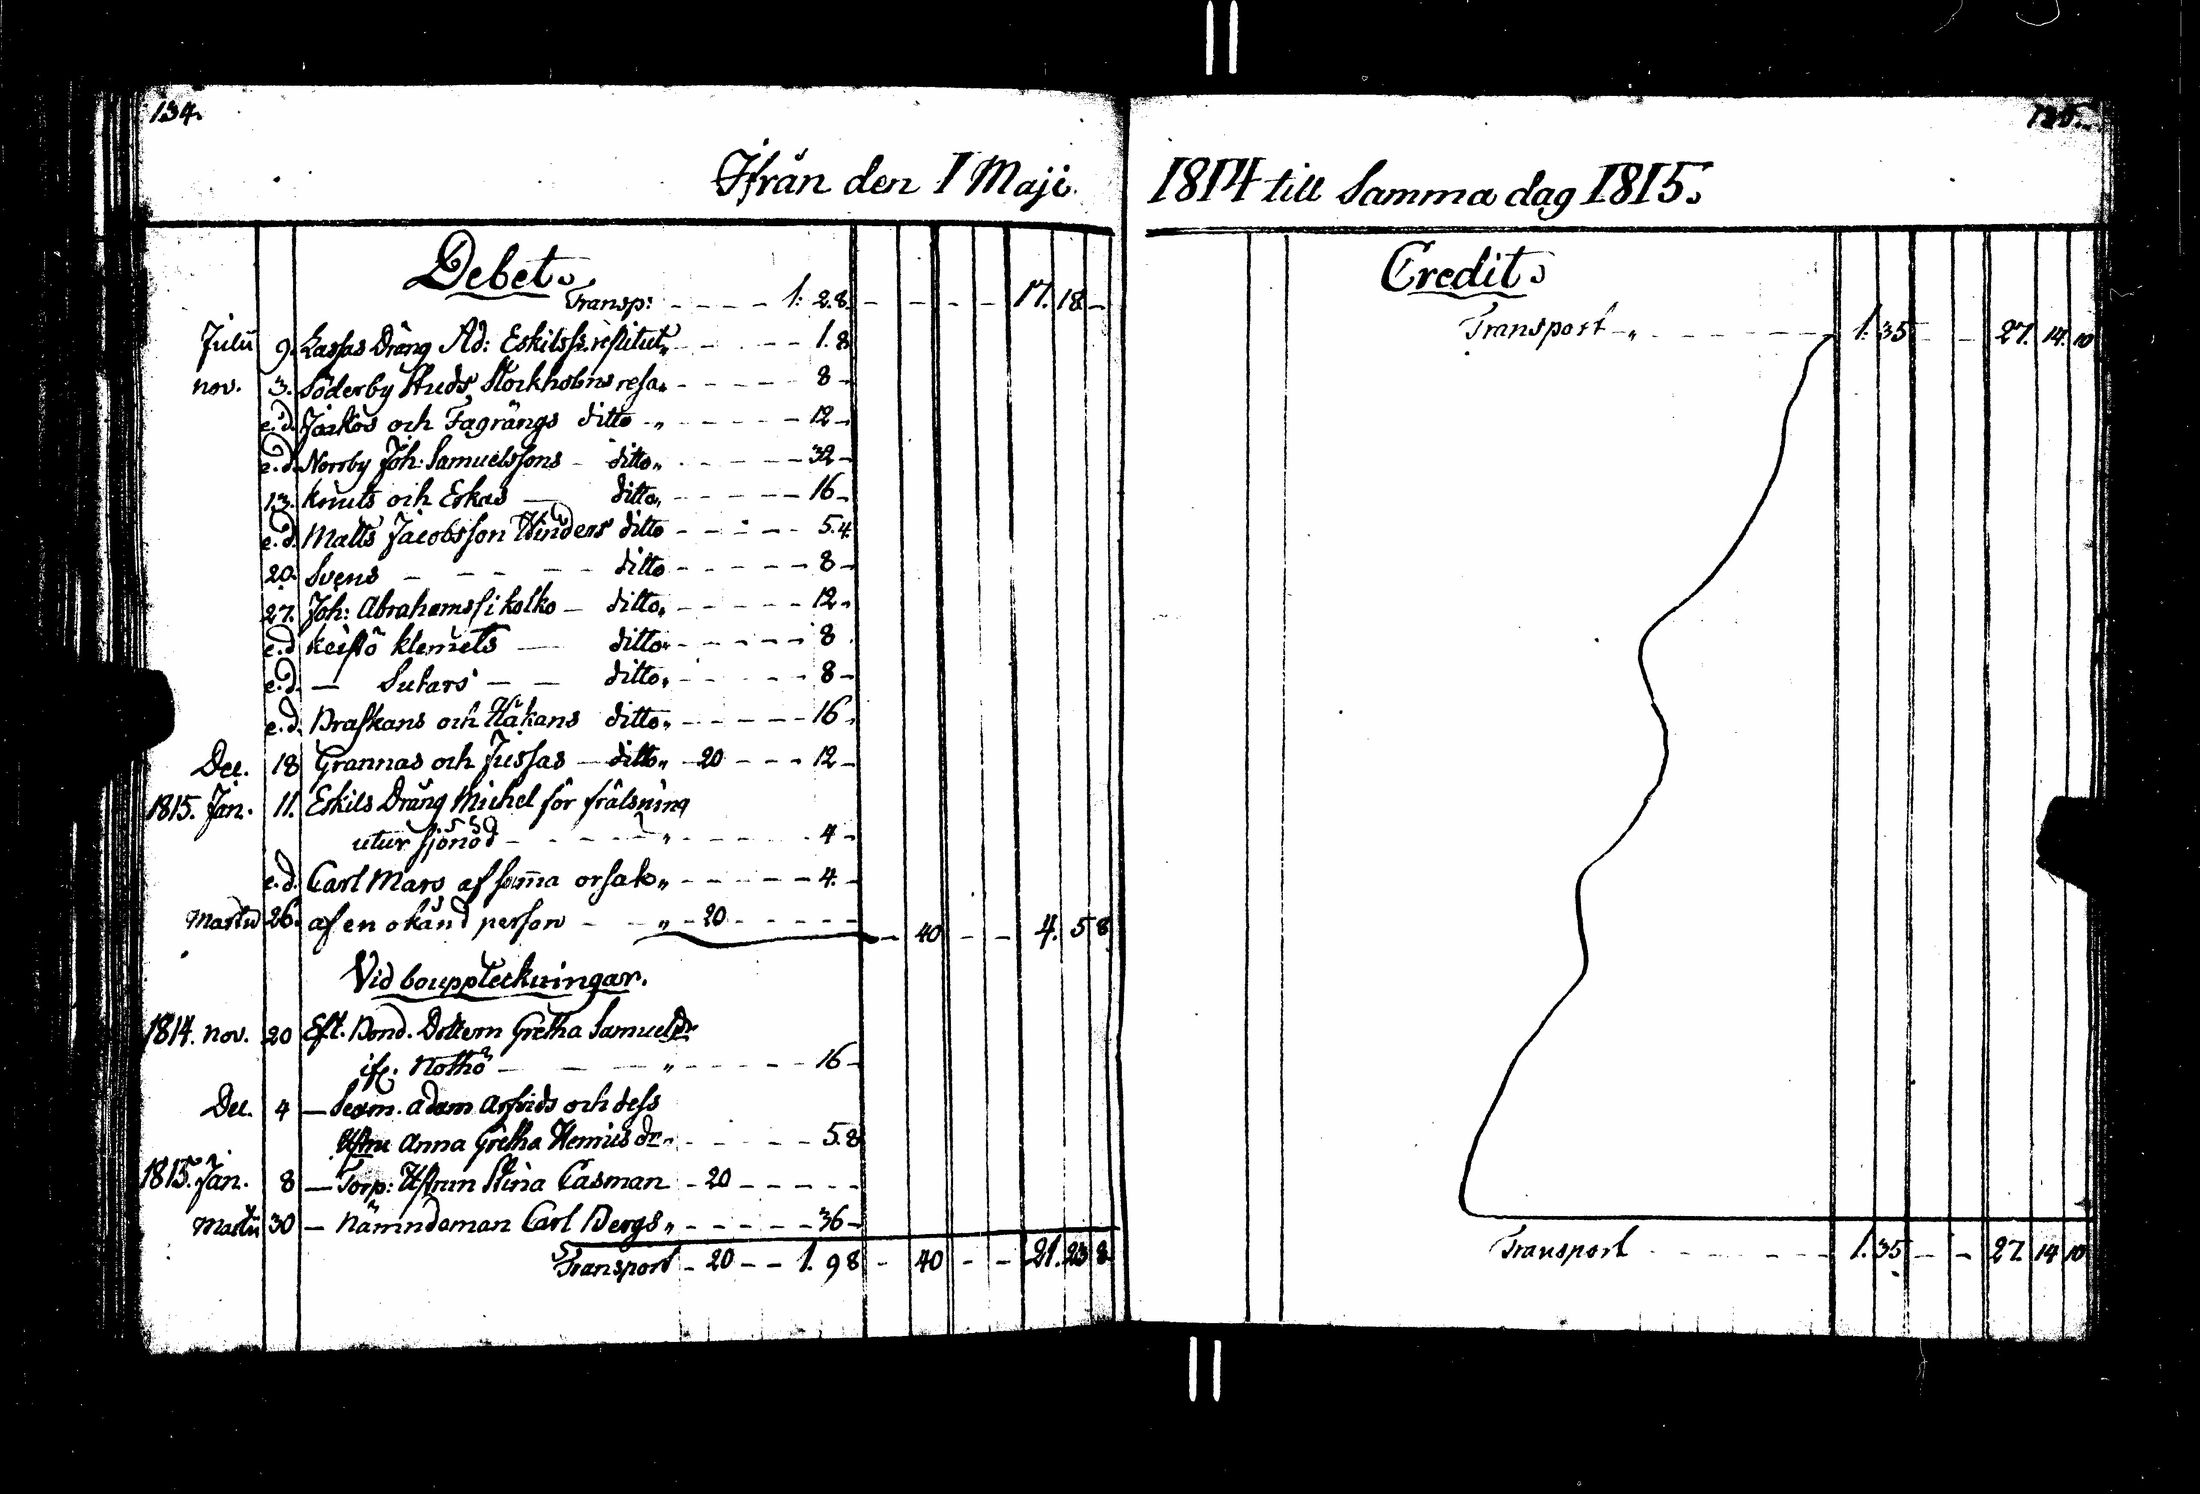 134.
Ifrån den 1 Maji
Debet.
Transp: 1. 2.8. 17. 18
Julii 9. Lassas Dräng Ad: Eskilss. restitut. 1.8
nov. 3. Söderby Studs Stockholms resa. 8
e.d. och Fagrängs ditto 12
e.d. Norrby Joh: Samuelssons ditto 32
13. Knuts och Eskas ditto 16
e.d. Matts Jacobsson Hinders ditto 5.4
20. Svens ditto 8
27. Joh: Abrahamss i kolko ditto 12
e.d. Keistö Klemets ditto 8
e.d. — Sutars ditto 8
e.d. Braskans och Håkans ditto 16
Dec. 18 Grannas och Jussas ditto 20 12
1815. Jan. 11. Eskils Dräng Michel för frälsning
utur sjönöd 4
e.d. Carl Mars af sam̄a orsak 4
Martii 26. af en okänd person 20 40 4. 5 8
Vid bouppteckningar.
1814. nov. 20 Eft. Bond. Dottern Gretha Samuelsdr
ifr. Nothö 16
Dec. 4 — Adam Arfvids och dess
Hstru Anna Gretha Henricsdr 5.8
1815. Jan. 8 — Torp: Hstrun Stina Casman 20
Martii 30 — Nämndeman Carl Bergs 36
Transport 20 1. 9 8 40 21. 23 8
135.
1814 till Samma dag 1815.
Credit.
Transport 1. 35 27. 14. 10
Transport 1. 35 27. 14 10